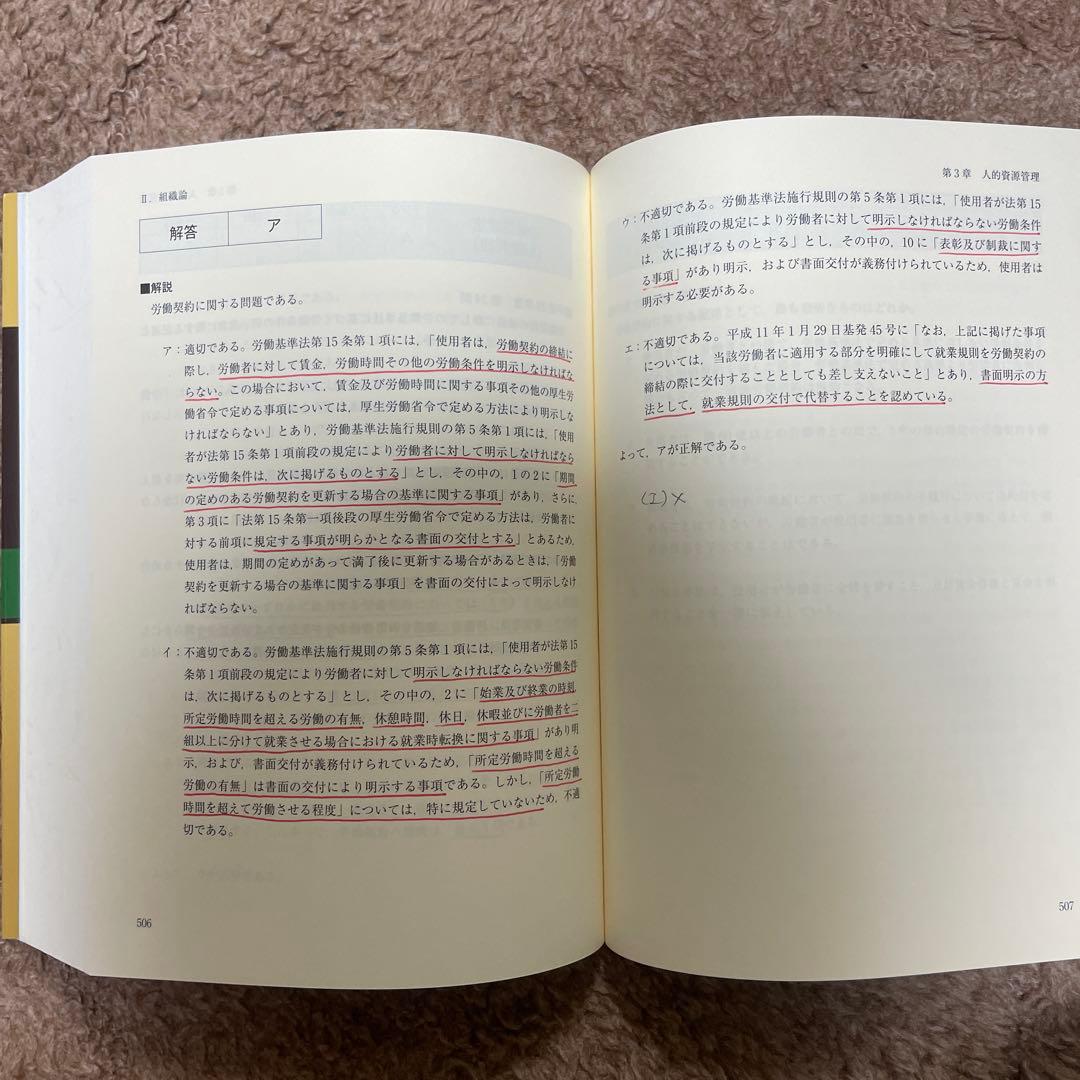 Ⅱ．組織論
解答 ア
■解説
労働契約に関する問題である。
ア：適切である。労働基準法第15条第1項には，「使用者は，労働契約の締結に
際し，労働者に対して賃金，労働時間その他の労働条件を明示しなければな
らない。この場合において，賃金及び労働時間に関する事項その他の厚生労
働省令で定める事項については，厚生労働省令で定める方法により明示しな
ければならない」とあり，労働基準法施行規則の第5条第1項には，「使用
者が法第15条第1項前段の規定により労働者に対して明示しなければなら
ない労働条件は，次に掲げるものとする」とし，その中の，1の2に「期間
の定めのある労働契約を更新する場合の基準に関する事項」があり，さらに，
第3項に「法第15条第一項後段の厚生労働省令で定める方法は，労働者に
対する前項に規定する事項が明らかとなる書面の交付とする」とあるため，
使用者は，期間の定めがあって満了後に更新する場合があるときは，「労働
契約を更新する場合の基準に関する事項」を書面の交付によって明示しなけ
ればならない。
イ：不適切である。労働基準法施行規則の第5条第1項には，「使用者が法第15
条第1項前段の規定により労働者に対して明示しなければならない労働条件
は，次に掲げるものとする」とし，その中の，2に「始業及び終業の時刻，
所定労働時間を超える労働の有無，休憩時間，休日，休暇並びに労働者を二
組以上に分けて就業させる場合における就業時転換に関する事項」があり明
示，および，書面交付が義務付けられているため，「所定労働時間を超える
労働の有無」は書面の交付により明示する事項である。しかし，「所定労働
時間を超えて労働させる程度」については，特に規定していないため，不適
切である。
506
第3章 人的資源管理
ウ：不適切である。労働基準法施行規則の第5条第1項には，「使用者が法第15
条第1項前段の規定により労働者に対して明示しなければならない労働条件
は，次に掲げるものとする」とし，その中の，10に「表彰及び制裁に関す
る事項」があり明示，および書面交付が義務付けられているため，使用者は
明示する必要がある。
エ：不適切である。平成11年1月29日基発45号に「なお，上記に掲げた事項
については，当該労働者に適用する部分を明確にして就業規則を労働契約の
締結の際に交付することとしても差し支えないこと」とあり，書面明示の方
法として，就業規則の交付で代替することを認めている。
よって，アが正解である。
(エ)×
507